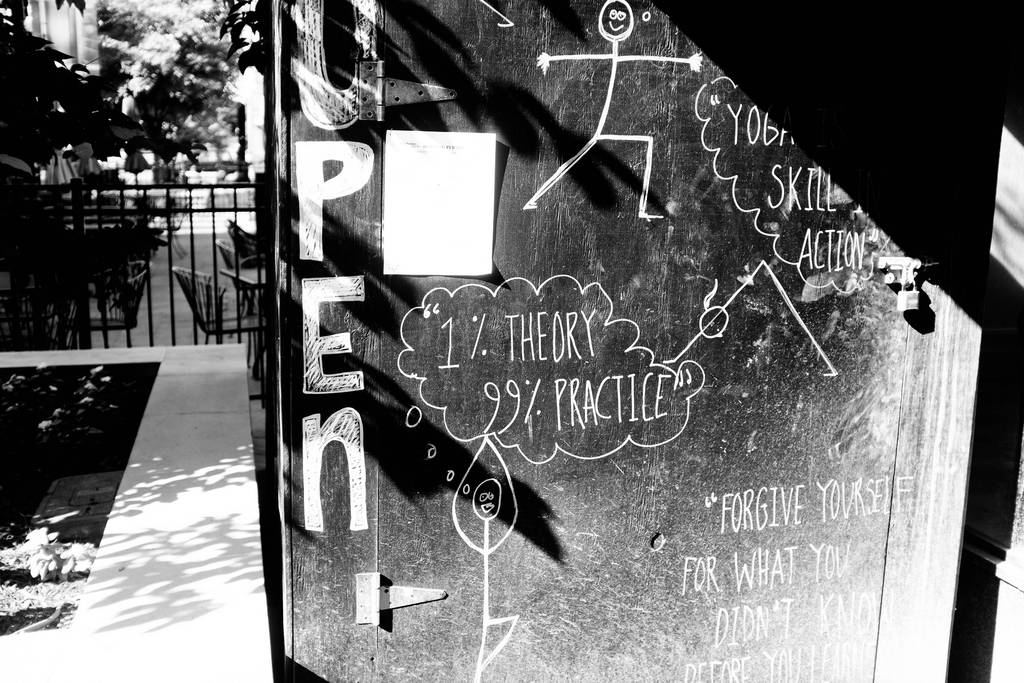 OPEn
"YOGA IS
SKILL IN
ACTION"
"1% THEORY
99% PRACTICE"
"FORGIVE YOURSELF
FOR WHAT YOU
DIDN'T KNOW
BEFORE YOU LEARN